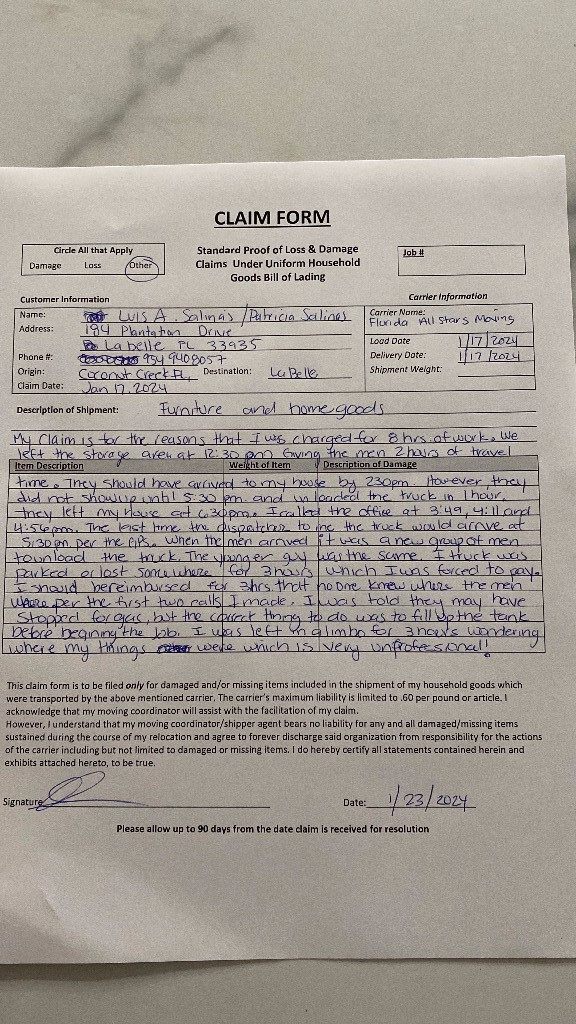 CLAIM FORM
Circle All that Apply
Damage Loss Other
Standard Proof of Loss & Damage
Claims Under Uniform Household
Goods Bill of Lading
Job #
Customer Information
Carrier Information
Name: Luis A. Salinas / Patricia Salinas
Address: 194 Plantation Drive
La belle FL 33935
Phone #: 954 9408057
Origin: Coconut Creek FL Destination: La Belle
Claim Date: Jan 17, 2024
Carrier Name:
Florida All Stars Moving
Load Date 1/17/2024
Delivery Date: 1/17/2024
Shipment Weight:
Description of Shipment: Furniture and home goods
My Claim is for the reasons that I was charged for 8 hrs. of work. We
left the storage area at 12:30 pm Giving the men 2 hours of travel
Item Description Weight of Item Description of Damage
time. They should have arrived to my house by 230pm. However, they
did not show up until 5:30 pm. and unloaded the truck in 1 hour.
they left my house at 6:30pm. I called the office at 3:49, 4:11 and
4:56pm. The last time the dispatcher to me the truck would arrive at
5:30 pm per the GPS. When the men arrived it was a new group of men
to unload the truck. The younger guy was the same. I truck was
parked or lost somewhere for 3 hours which I was forced to pay.
I should be reimbursed for 3hrs. that no one knew where the men
where per the first two calls I made. I was told they may have
stopped for gas, but the correct thing to do was to fill up the tank
before begining the job. I was left in a limbo for 3 hours wondering
where my things were which is very unprofesional!
This claim form is to be filed only for damaged and/or missing items included in the shipment of my household goods which
were transported by the above mentioned carrier. The carrier's maximum liability is limited to .60 per pound or article. I
acknowledge that my moving coordinator will assist with the facilitation of my claim.
However, I understand that my moving coordinator/shipper agent bears no liability for any and all damaged/missing items
sustained during the course of my relocation and agree to forever discharge said organization from responsibility for the actions
of the carrier including but not limited to damaged or missing items. I do hereby certify all statements contained herein and
exhibits attached hereto, to be true.
Signature Date: 1/23/2024
Please allow up to 90 days from the date claim is received for resolution